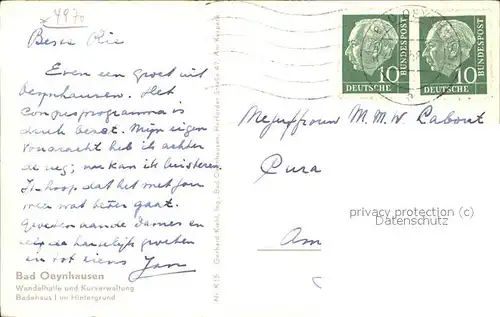 4970
Beste Rie
Even een groet uit
Oeynhausen. Het
Congresprogramma is
druk bezet. Mijn eigen
voordracht heb ik achter
de rug; nu kan ik luisteren.
Ik hoop dat het met jou
weer wat beter gaat.
Groeten aan de Dames en
hartelijk groeten
en tot ziens Jan
Bad Oeynhausen
Wandelhalle und Kurverwaltung
Badehaus I im Hintergrund
Nr. K 15 Gerhard Kiehl, Ing., Bad Oeynhausen
10 DEUTSCHE BUNDESPOST
10 DEUTSCHE BUNDESPOST
Mejuffrouw M. M. W
Cura
Am
privacy protection (c)
ansichtskarten-center.de